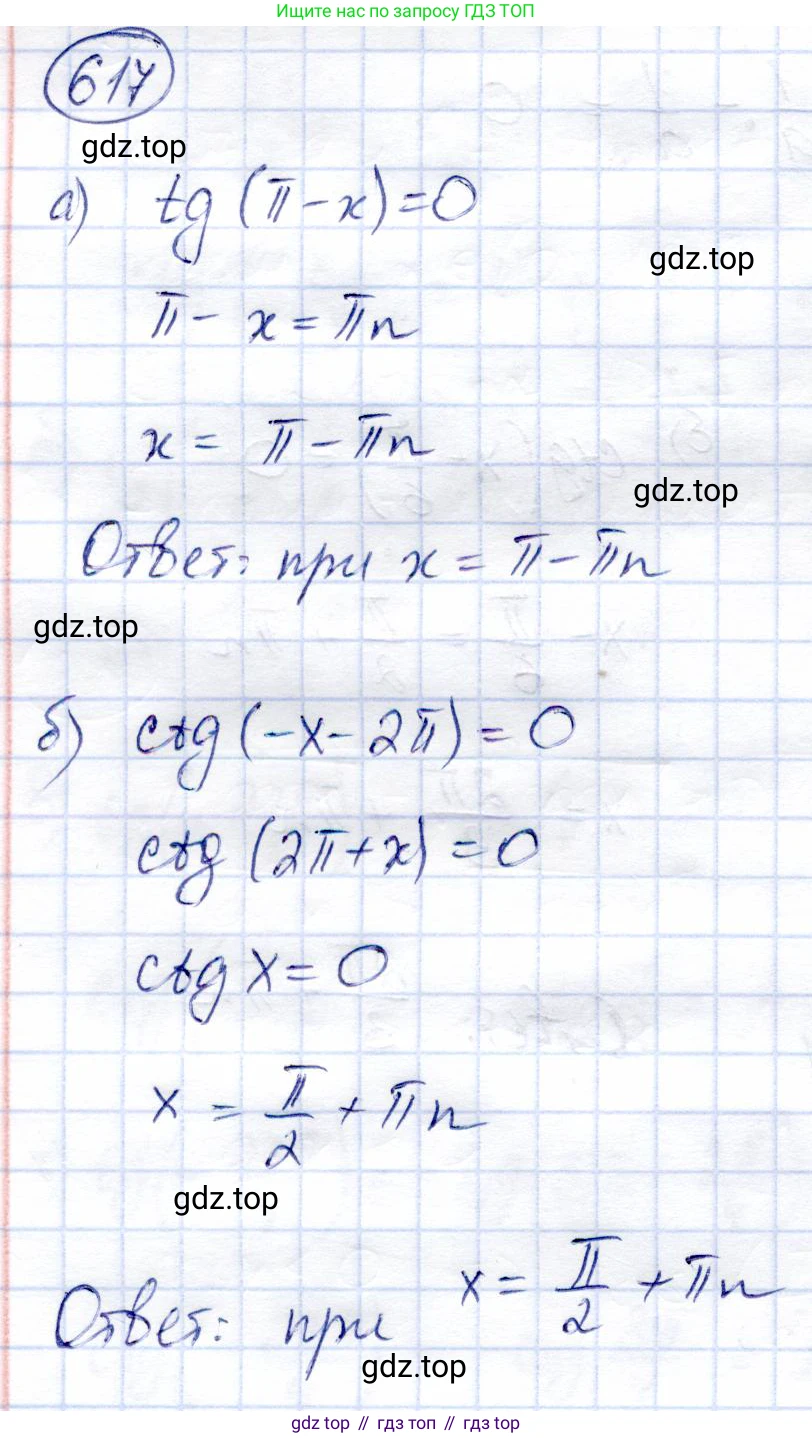 Ищите нас по запросу ГДЗ ТОП
617
gdz.top
а) tg (π - x) = 0
gdz.top
π - x = πn
x = π - πn
gdz.top
Ответ: при x = π - πn
gdz.top
б) ctg (-x - 2π) = 0
ctg (2π + x) = 0
ctg x = 0
x = π/2 + πn
gdz.top
Ответ: при x = π/2 + πn
gdz.top
gdz top // гдз топ // gdz top